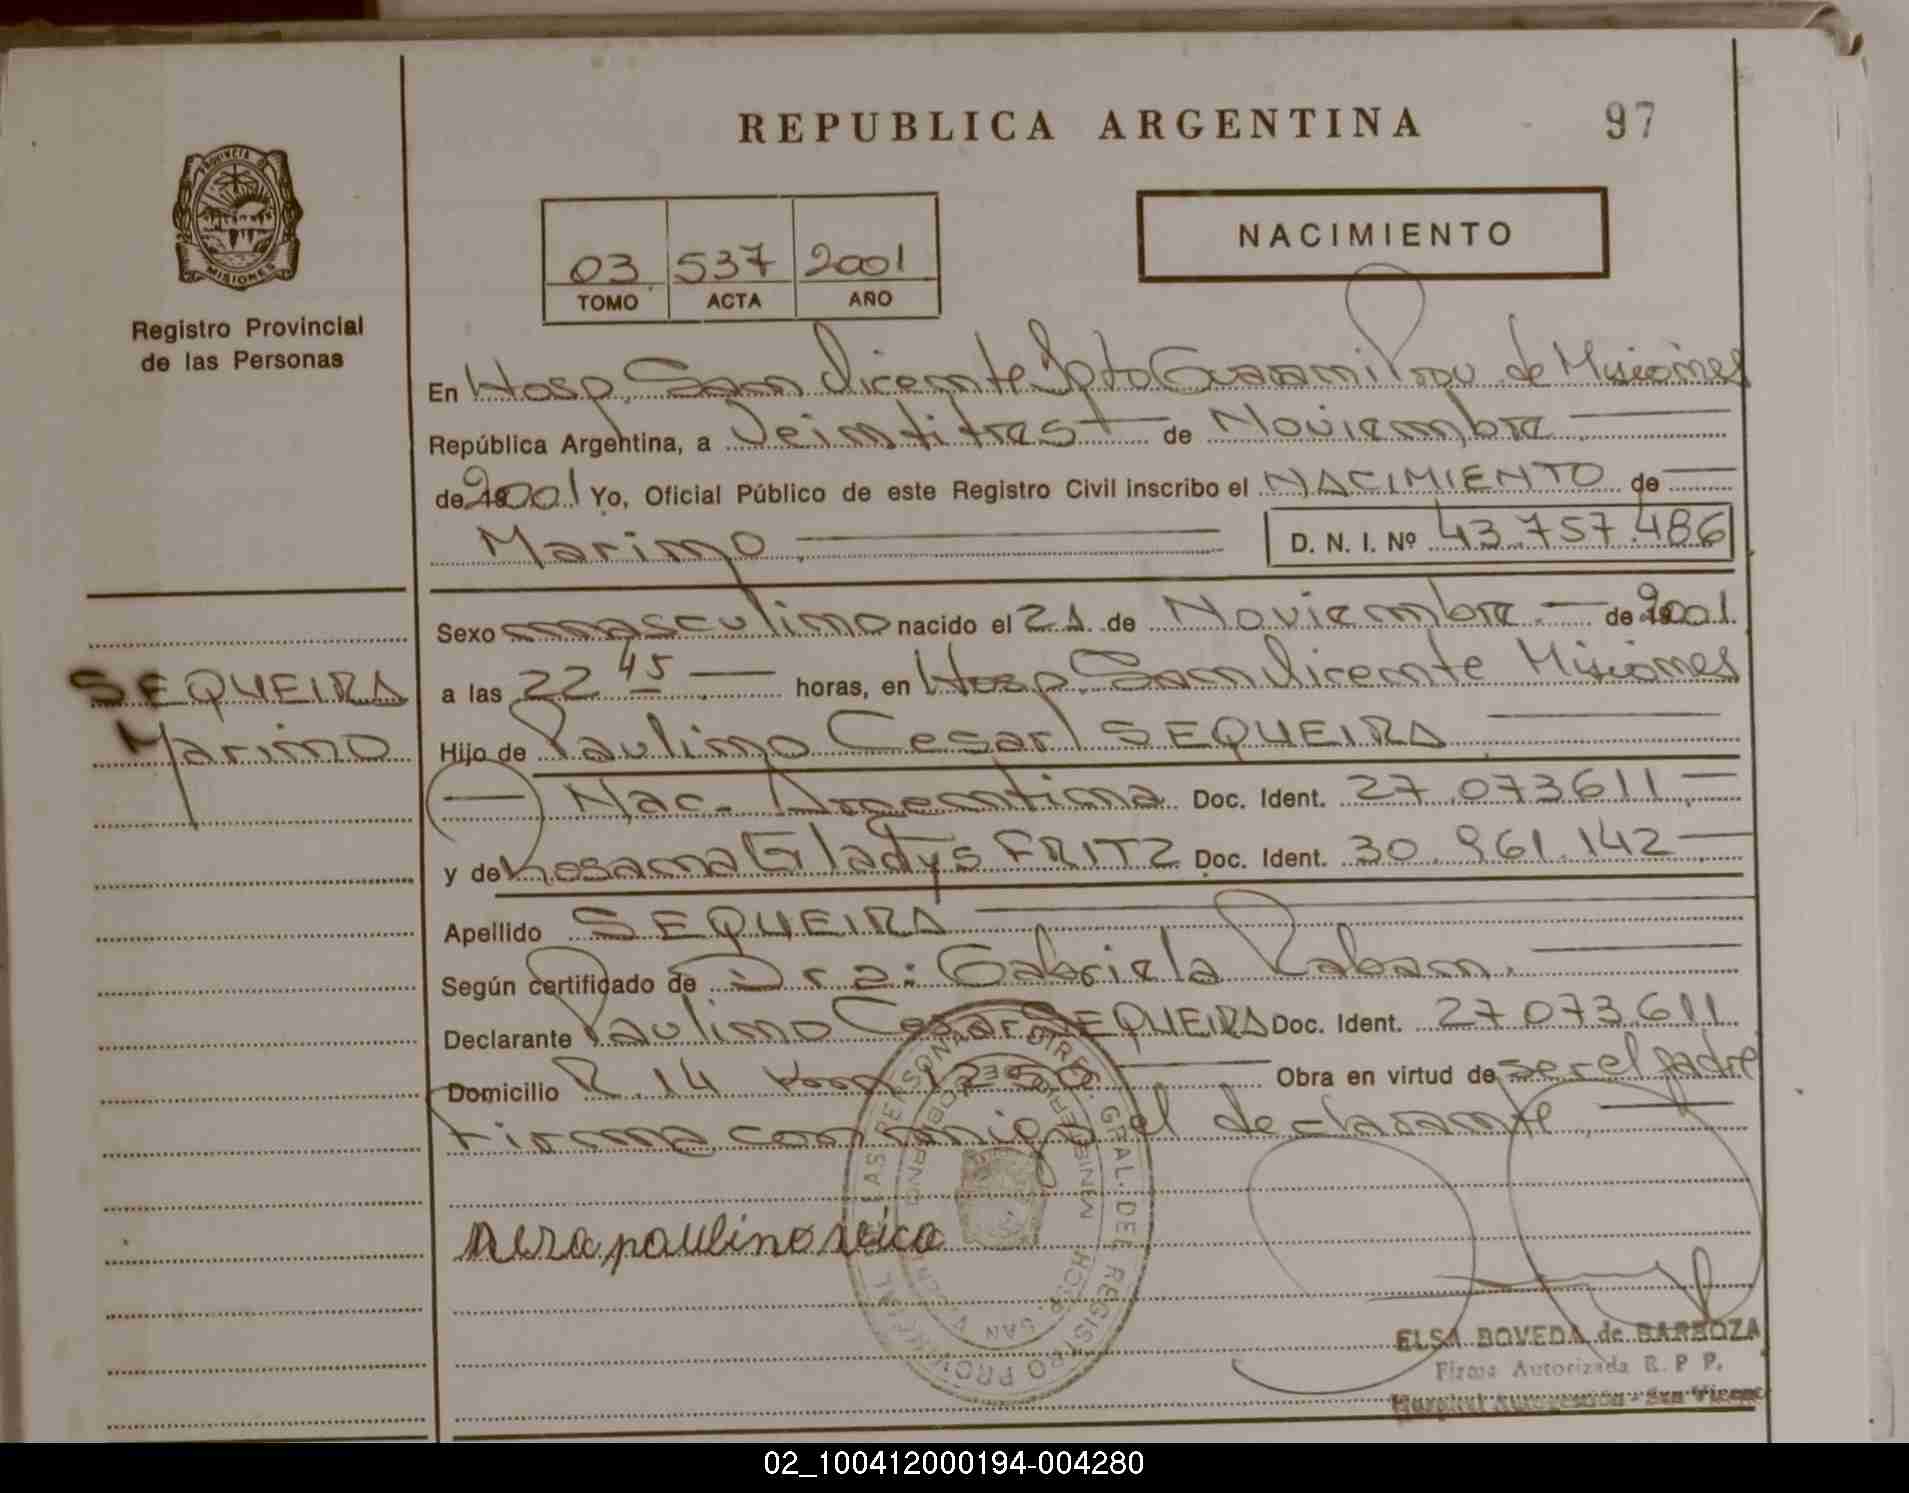 REPUBLICA ARGENTINA
97
PROVINCIA DE
MISIONES
Registro Provincial
de las Personas
NACIMIENTO
03 537 2001
TOMO ACTA AÑO
En Hosp. San Vicente Dpto Guarani Prov. de Misiones
República Argentina, a Veintitres de Noviembre
de 2001 Yo, Oficial Público de este Registro Civil inscribo el NACIMIENTO de
Marino D. N. I. Nº 43.757.486
Sexo masculino nacido el 21 de Noviembre de 2001
SEQUEIRA
Marino
a las 22 45 horas, en Hosp. San Vicente Misiones
Hijo de Paulino Cesar SEQUEIRA
Nac. Argentina Doc. Ident. 27.073611
y de Rosana Gladys FRITZ Doc. Ident. 30.961.142
Apellido SEQUEIRA
Según certificado de Dra: Gabriela Raban.
Declarante Paulino Cesar SEQUEIRA Doc. Ident. 27.073.611
Domicilio R. 14 Km 1250 Obra en virtud de ser el padre
Firma conmigo el declarante
paulino
DIREC. GRAL. DEL REGISTRO PROVINCIAL LAS PERSONAS
HOSP. SAN VICENTE
ELSA BOVEDA de BARBOZA
Firma Autorizada R. P. P.
Hospital Autogestión - San Vicente
02_100412000194-004280